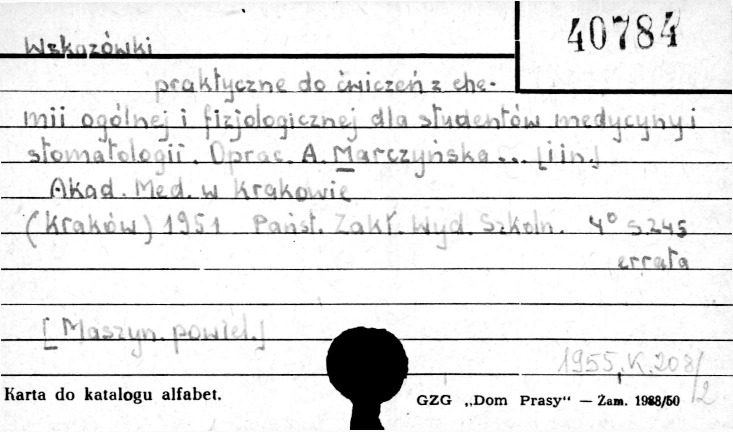 40784
Wskazówki
praktyczne do ćwiczeń z che-
mii ogólnej i fizjologicznej dla studentów medycyny i
stomatologii. Oprac. A. Marczyńska... [i in.]
Akad. Med. w Krakowie
(Kraków) 1951 Państ. Zakł. Wyd. Szkoln. 4° s.245
errata
[Maszyn. powiel.]
1955.K.208/2
Karta do katalogu alfabet.
GZG „Dom Prasy“ — Zam. 1988/50